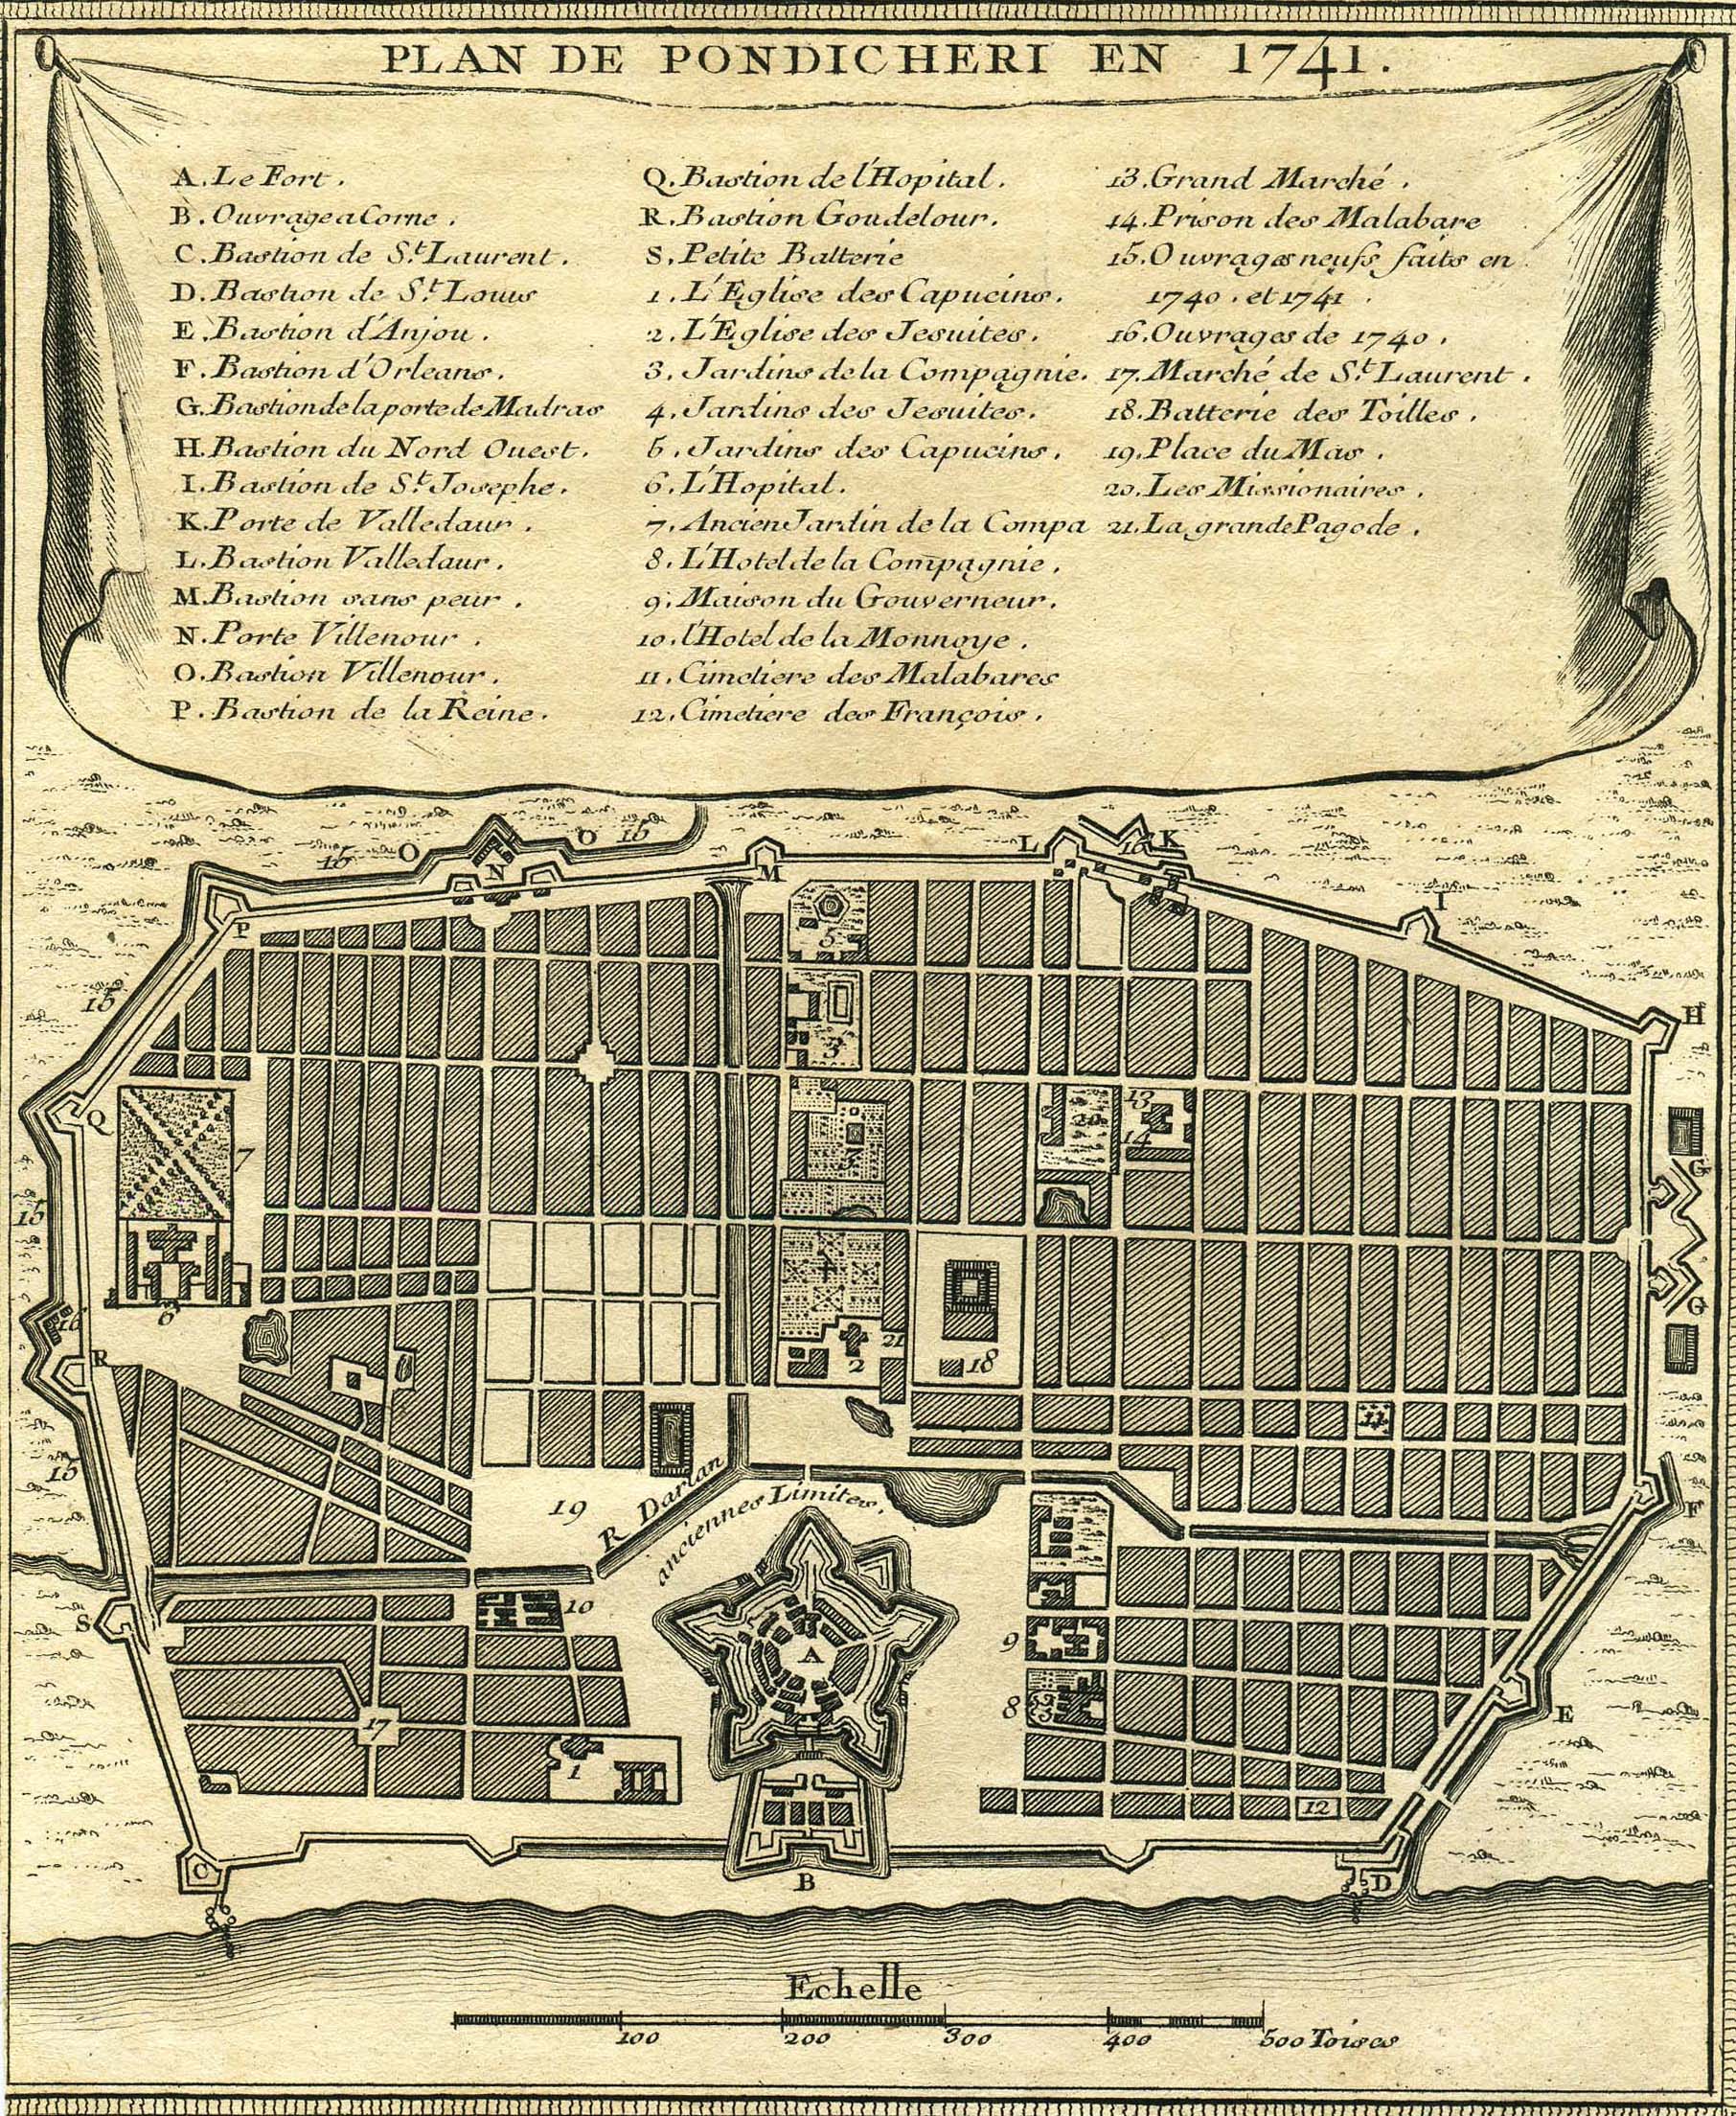 PLAN DE PONDICHERI EN 1741.
A. Le Fort.
B. Ouvrage a Corne.
C. Bastion de S.t Laurent.
D. Bastion de S.t Louis
E. Bastion d'Anjou.
F. Bastion d'Orleans.
G. Bastion de la porte de Madras
H. Bastion du Nord Ouest.
I. Bastion de S.t Josephe.
K. Porte de Valledaur.
L. Bastion Valledaur.
M. Bastion sans peur.
N. Porte Villenour.
O. Bastion Villenour.
P. Bastion de la Reine.
Q. Bastion de l'Hopital.
R. Bastion Goudelour.
S. Petite Batterie
1. L'Eglise des Capucins.
2. L'Eglise des Jesuites.
3. Jardins de la Compagnie.
4. Jardins des Jesuites.
5. Jardins des Capucins.
6. L'Hopital.
7. Ancien Jardin de la Compa
8. L'Hotel de la Compagnie.
9. Maison du Gouverneur.
10. l'Hotel de la Monnoye.
11. Cimetiere des Malabares
12. Cimetiere des François.
13. Grand Marché.
14. Prison des Malabare
15. Ouvrages neufs faits en
1740. et 1741.
16. Ouvrages de 1740.
17. Marché de S.t Laurent.
18. Batterie des Toilles.
19. Place du Mas.
20. Les Missionaires.
21. La grande Pagode.
O
O
15
16
N
M
L
16
K
I
P
5
15
3
H
Q
7
20
13
14
G
15
4
6
21
2
18
G
16
R
11
15
19
R Darian
anciennes Limites.
F
S
10
A
9
8
E
17
1
12
C
B
D
Echelle
100
200
300
400
500 Toises